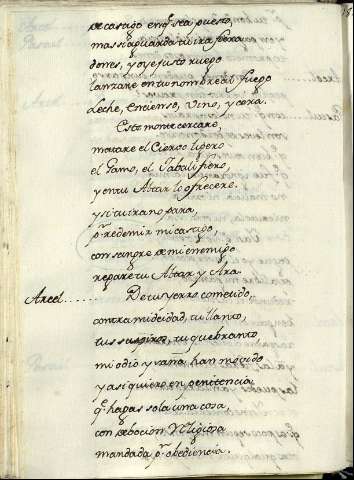 de castigo en q̃ sea puesto,
mas si aguarda tu ira fiera
dones, y oye justo ruego
lanzare en tu nombre al fuego
Leche, Encienso, Vino, y cera.
Este monte cercaré,
matare el Ciervo ligero
el Gamo, el Jabalí fiero,
y en tu Altar lo ofrecere.
y si tu ira no para,
p.ª redemir mi castigo,
con sangre de mi enemigo
regaré tu Altar y Ara.
Arcel...... De tu yerro cometido
contra mi deidad, tu llanto,
tus suspiros, tu quebranto
mi odio y raña han movido
y asi quiero en penitencia
q̃ hagas sola una cosa
con debocion Religiosa
mandada p.r obediencia.